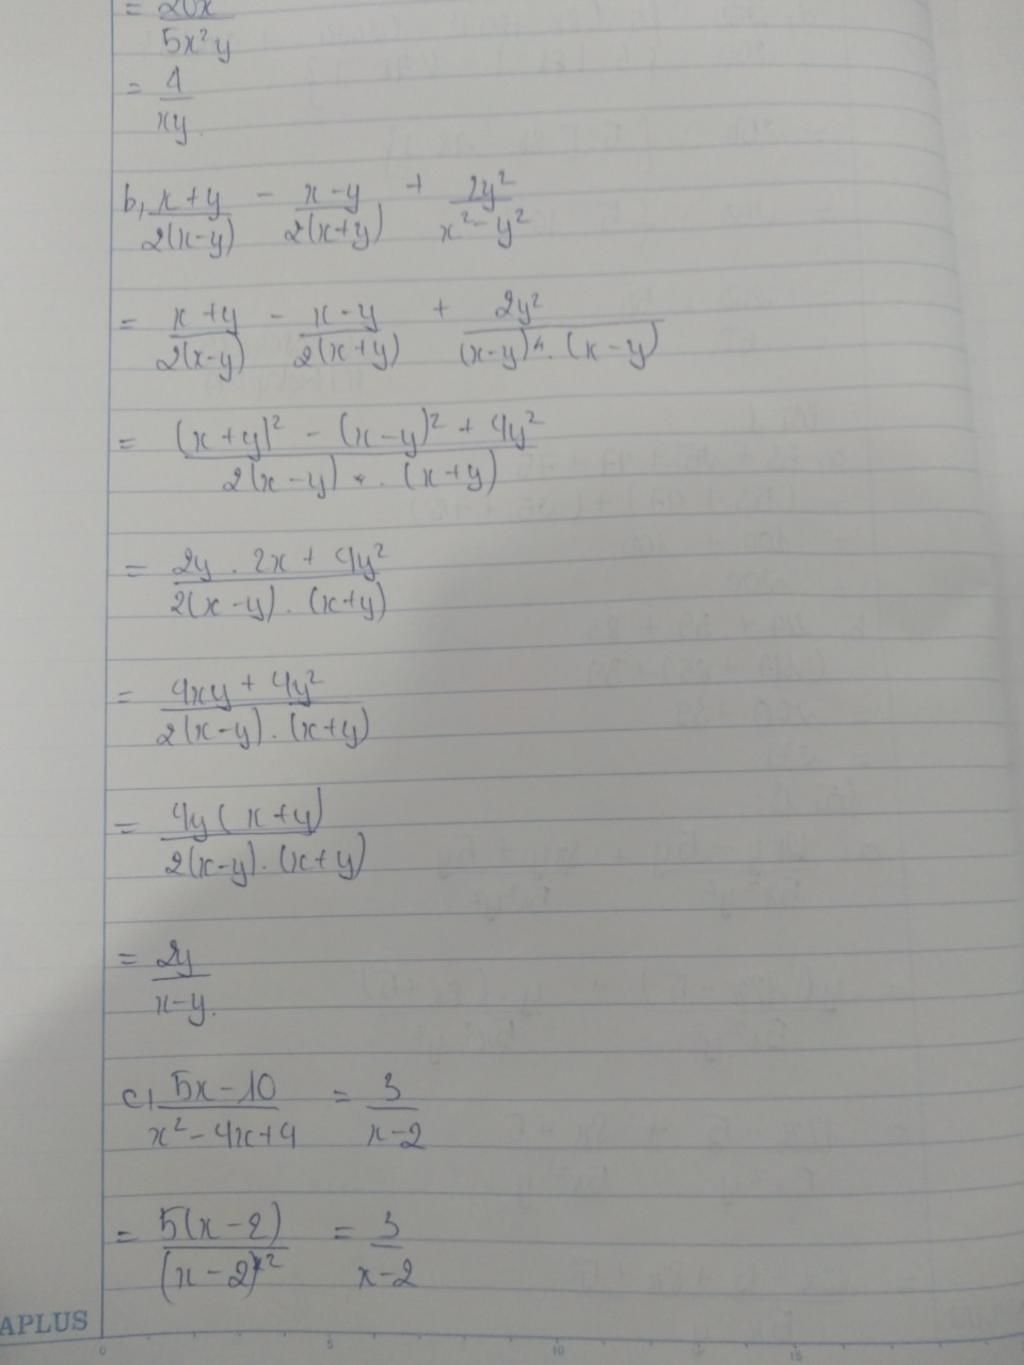 = 20x / 5x²y
= 4 / xy.
b, x+y / 2(x-y) - x-y / 2(x+y) + 2y² / x²-y²
= x+y / 2(x-y) - x-y / 2(x+y) + 2y² / (x-y) . (x-y)
= (x+y)² - (x-y)² + 4y² / 2(x-y) . (x+y)
= 2y . 2x + 4y² / 2(x-y) . (x+y)
= 4xy + 4y² / 2(x-y) . (x+y)
= 4y(x+y) / 2(x-y) . (x+y)
= 2y / x-y.
c, 5x-10 / x²-4x+4 = 3 / x-2
= 5(x-2) / (x-2)² = 3 / x-2
APLUS
0 5 10 15